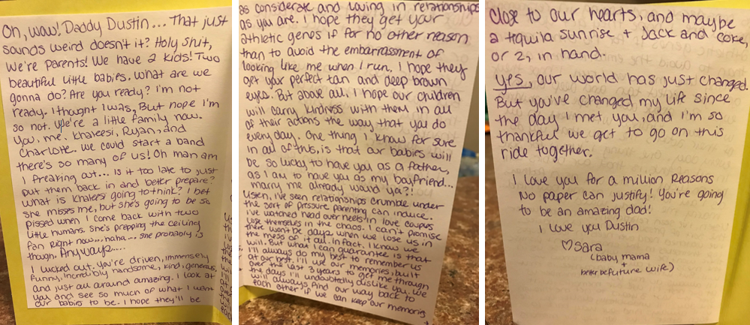 Oh, wow! Daddy Dustin... That just
sounds weird doesn't it? Holy shit,
we're parents! We have 2 kids! Two
beautiful little babies. What are we
gonna do? Are you ready? I'm not
ready, I thought I was, But nope I'm
so not. We're a little family now.
You, me, Khaleesi, Ryan, and
Charlote. We could start a band
there's so many of us! Oh man am
I freaking out... Is it too late to just
put them back in and better prepare?
what is Khaleesi going to think? I bet
she misses me, but she's going to be so
pissed when I come back with two
little humans. She's prepping the ceiling
fan right now... haha... she probably is
though. Anyways...
I lucked out. You're driven, immensely
funny, incredibly handsome, kind, generous,
and just all around amazing. I look at
you and see so much of what I want
our babies to be. I hope they'll be
as considerate and loving in relationships
as you are. I hope they get your
athletic genes if for no other reason
than to avoid the embarrassment of
looking like me when I run. I hope they
get your perfect tan and deep brown
eyes. But above all, I hope our children
will carry kindness with them in all
of their actions the way that you do
every day. One thing I know for sure
in all of this, is that our babies will
be so lucky to have you as a father,
as I am to have you as my boyfriend...
marry me already would ya?!
Listen, I've seen relationships crumble under
the sort of pressure parenting can induce.
I've watched head over heels in love couples
lose themselves in the chaos. I can't promise
there won't be days when we lose us in
the mess of it all. In fact, I know we
will. But what I can guarantee is that
I'll always do my best to remember us
at our best. I'll use our memories, built
over the last 3 years to get me through
the days I'll undoubtedly dislike you. We
will always find our way back to
each other if we can keep our memories
close to our hearts, and maybe
a tequila sunrise + Jack and coke,
or 2, in hand.
Yes, our world has just changed.
But you've changed my life since
the day I met you, and I'm so
thankful we get to go on this
ride together.
I love you for a million reasons
No paper can justify! You're going
to be an amazing dad!
I love you Dustin
♡ Sara
(baby mama
+
future wife)